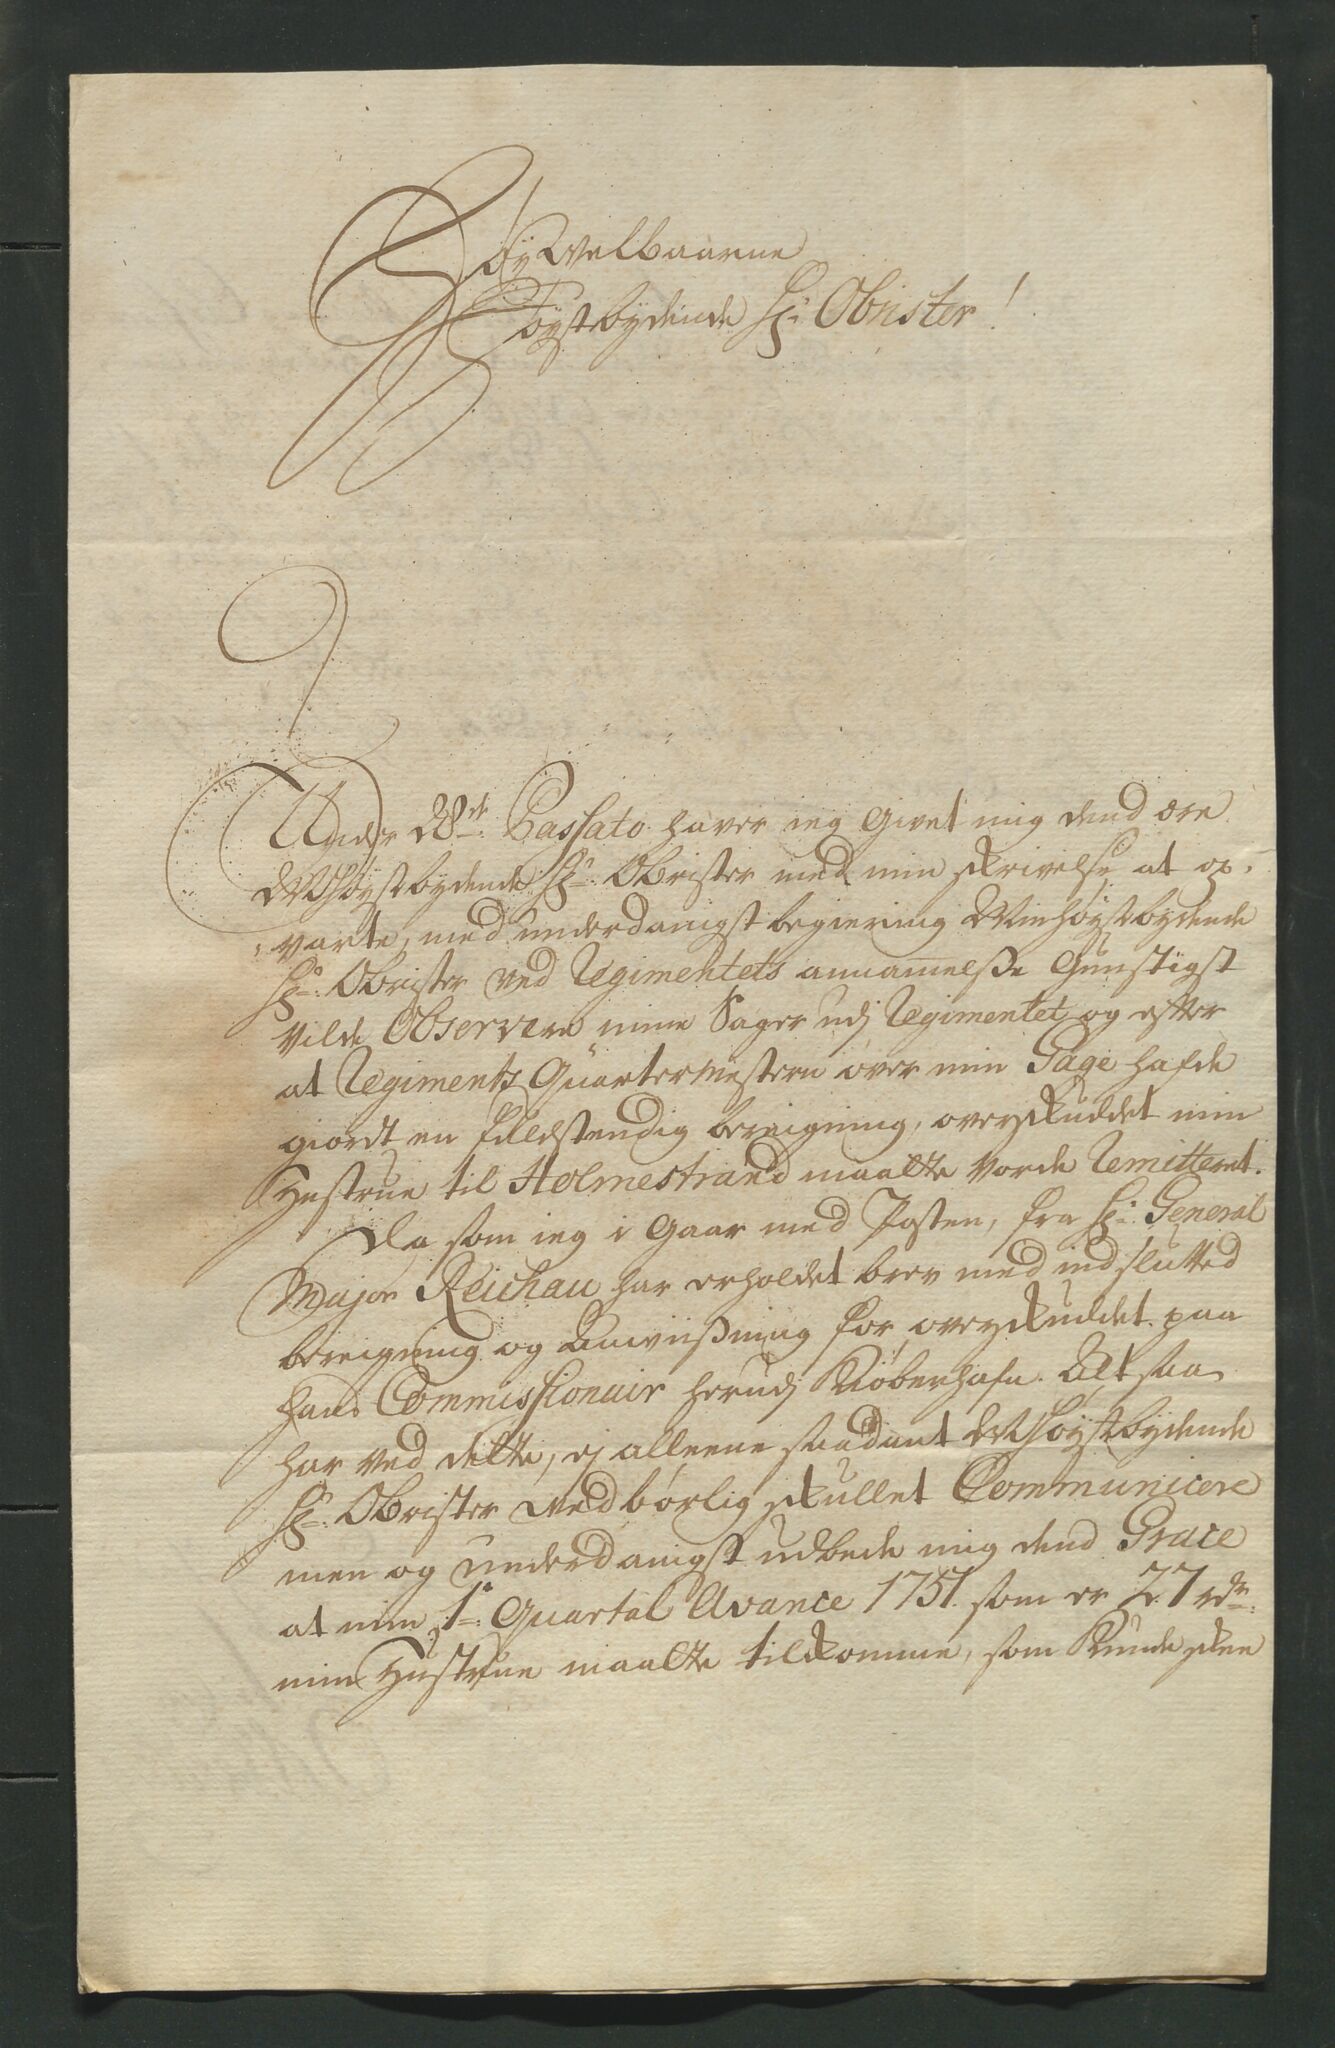 Høywelbaarne
Høystbydende Hr: Obrister!
Under 28de: Passato haver ieg givet mig dend ære
Høystbydende Hr: Obrister med min skrivelse at op-
varte, med underdanigst begiering Min høystbydende
Hr: Obrister ved Regimentets annammelsse gunstigst
vilde observere mine Sager udj Regimentet og efter
at Regiments Quartermestern over min Gage hafde
giordt en fuldstendig bereigning, overskuddet min
Hustrue til Holmestrand maatte vorde Remitteret.
Da som ieg i Gaar med Posten, fra Hr: General
Major Reichau har erholdet brev med indslutted
bereigning og Anviisning for overskuddet paa
hans Commissionair herudj Kiøbenhafn. Altsaa
har ved dette, ej alleene saadant Høystbydende
Hr: Obrister vedbørlig skullet Communicere
men og underdanigst udbede mig dend Grace
at min 1te: Quartal Avance 1751. som er 27 rdr:
min Hustrue maatte tilkomme, som kunde skee